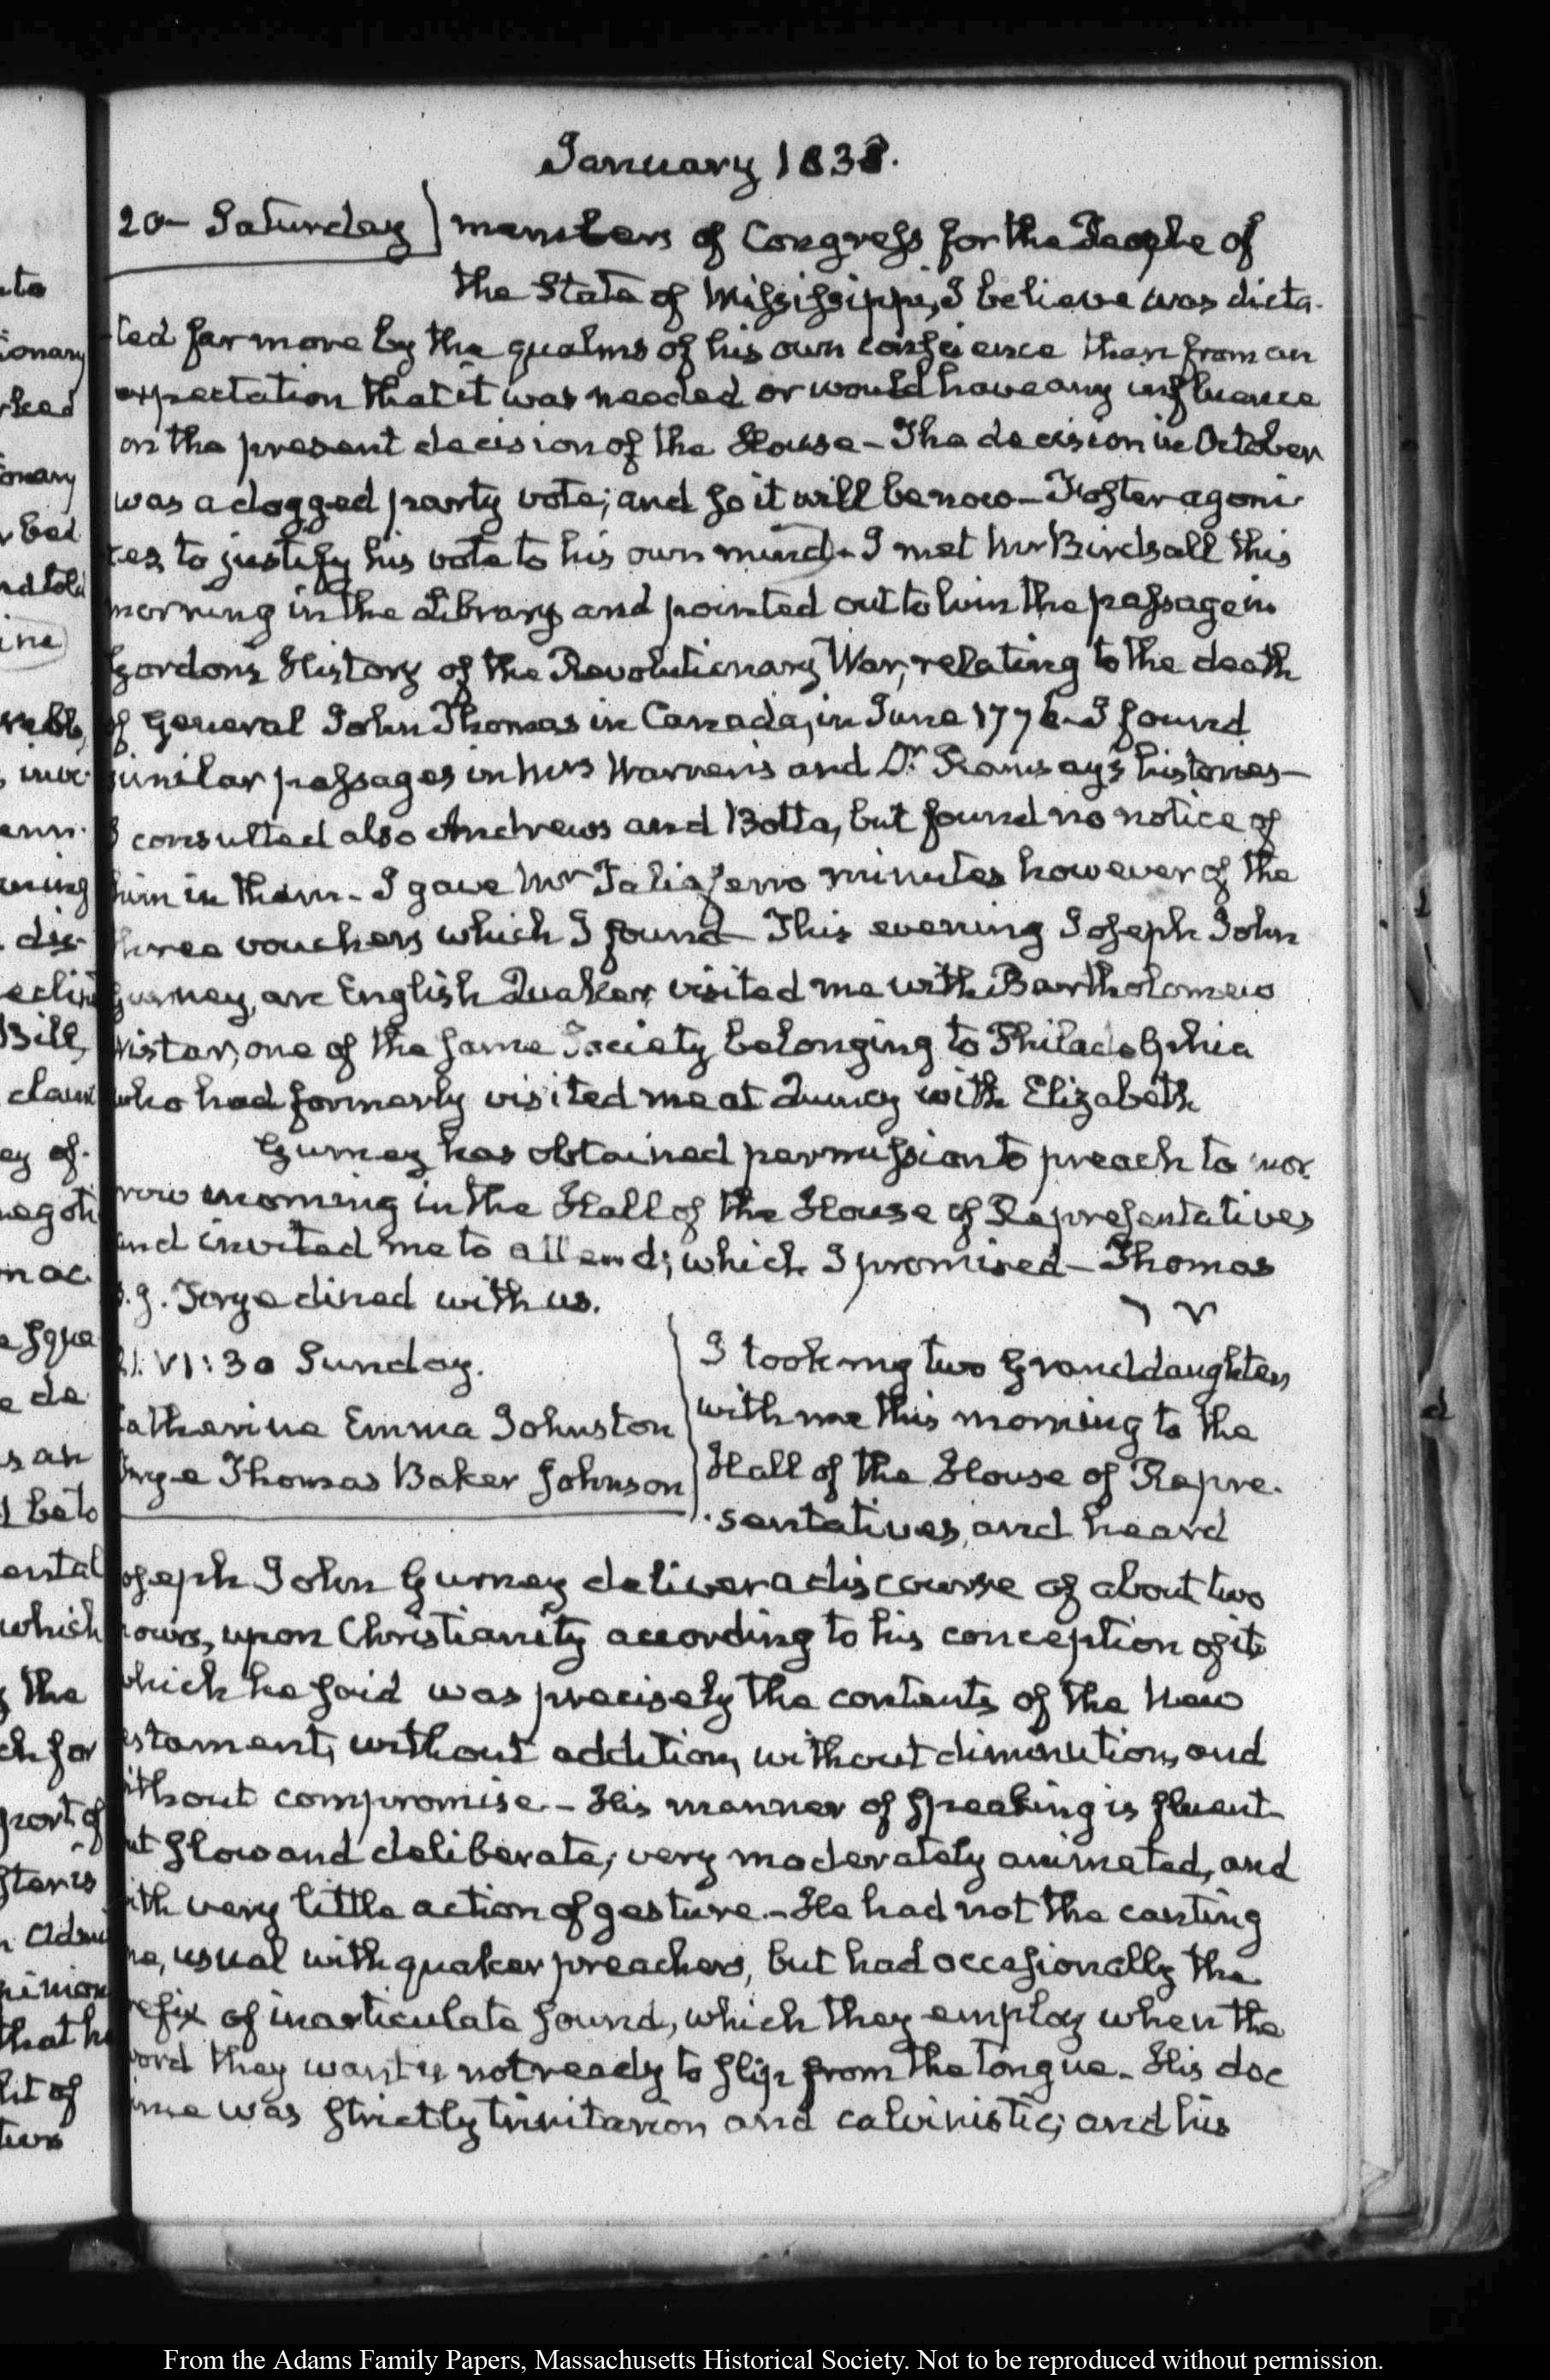 January 1838.
20— Saturday members of Congress for the People of
the State of Mississippi, I believe was dicta-
ted far more by the qualms of his own conscience than from an
expectation that it was needed or would have any influence
on the present decision of the House — The decision in October
was a dogged party vote; and so it will be now — Foster agoni
zes to justify his vote to his own mind — I met Mr Birdsall this
morning in the Library and pointed out to him the passage in
Gordon's History of the Revolutionary War, relating to the death
of General John Thomas in Canada, in June 1776 — I found
similar passages in Mrs Warren's and Dr. Ramsay's histories —
I consulted also Andrews and Botta, but found no notice of
him in them — I gave Mr Taliaferro minutes however of the
three vouchers which I found — This evening Joseph John
Gurney, an English Quaker, visited me with Bartholomew
Wistar, one of the same Society belonging to Philadelphia
who had formerly visited me at Quincy with Elizabeth
Gurney has obtained permission to preach to mor
row morning in the Hall of the House of Representatives
and invited me to attend; which I promised — Thomas
dined with us.
21. VI:30 Sunday.
Catherine Emma Johnston
Thomas Baker Johnson
I took my two Granddaughters
with me this morning to the
Hall of the House of Repre-
sentatives, and heard
Joseph John Gurney deliver a discourse of about two
hours, upon Christianity according to his conception of it
which he said was precisely the contents of the New
estament, without addition, without diminution, and
ithout compromise — His manner of speaking is fluent
ut slow and deliberate, very moderately animated, and
ith very little action of gesture — He had not the canting
ne, usual with quaker preachers, but had occasionally the
refix of inarticulate sound, which they employ when the
word they want is not ready to slip from the tongue — His doc
ine was strictly trinitarian and calvinistic; and his
From the Adams Family Papers, Massachusetts Historical Society. Not to be reproduced without permission.